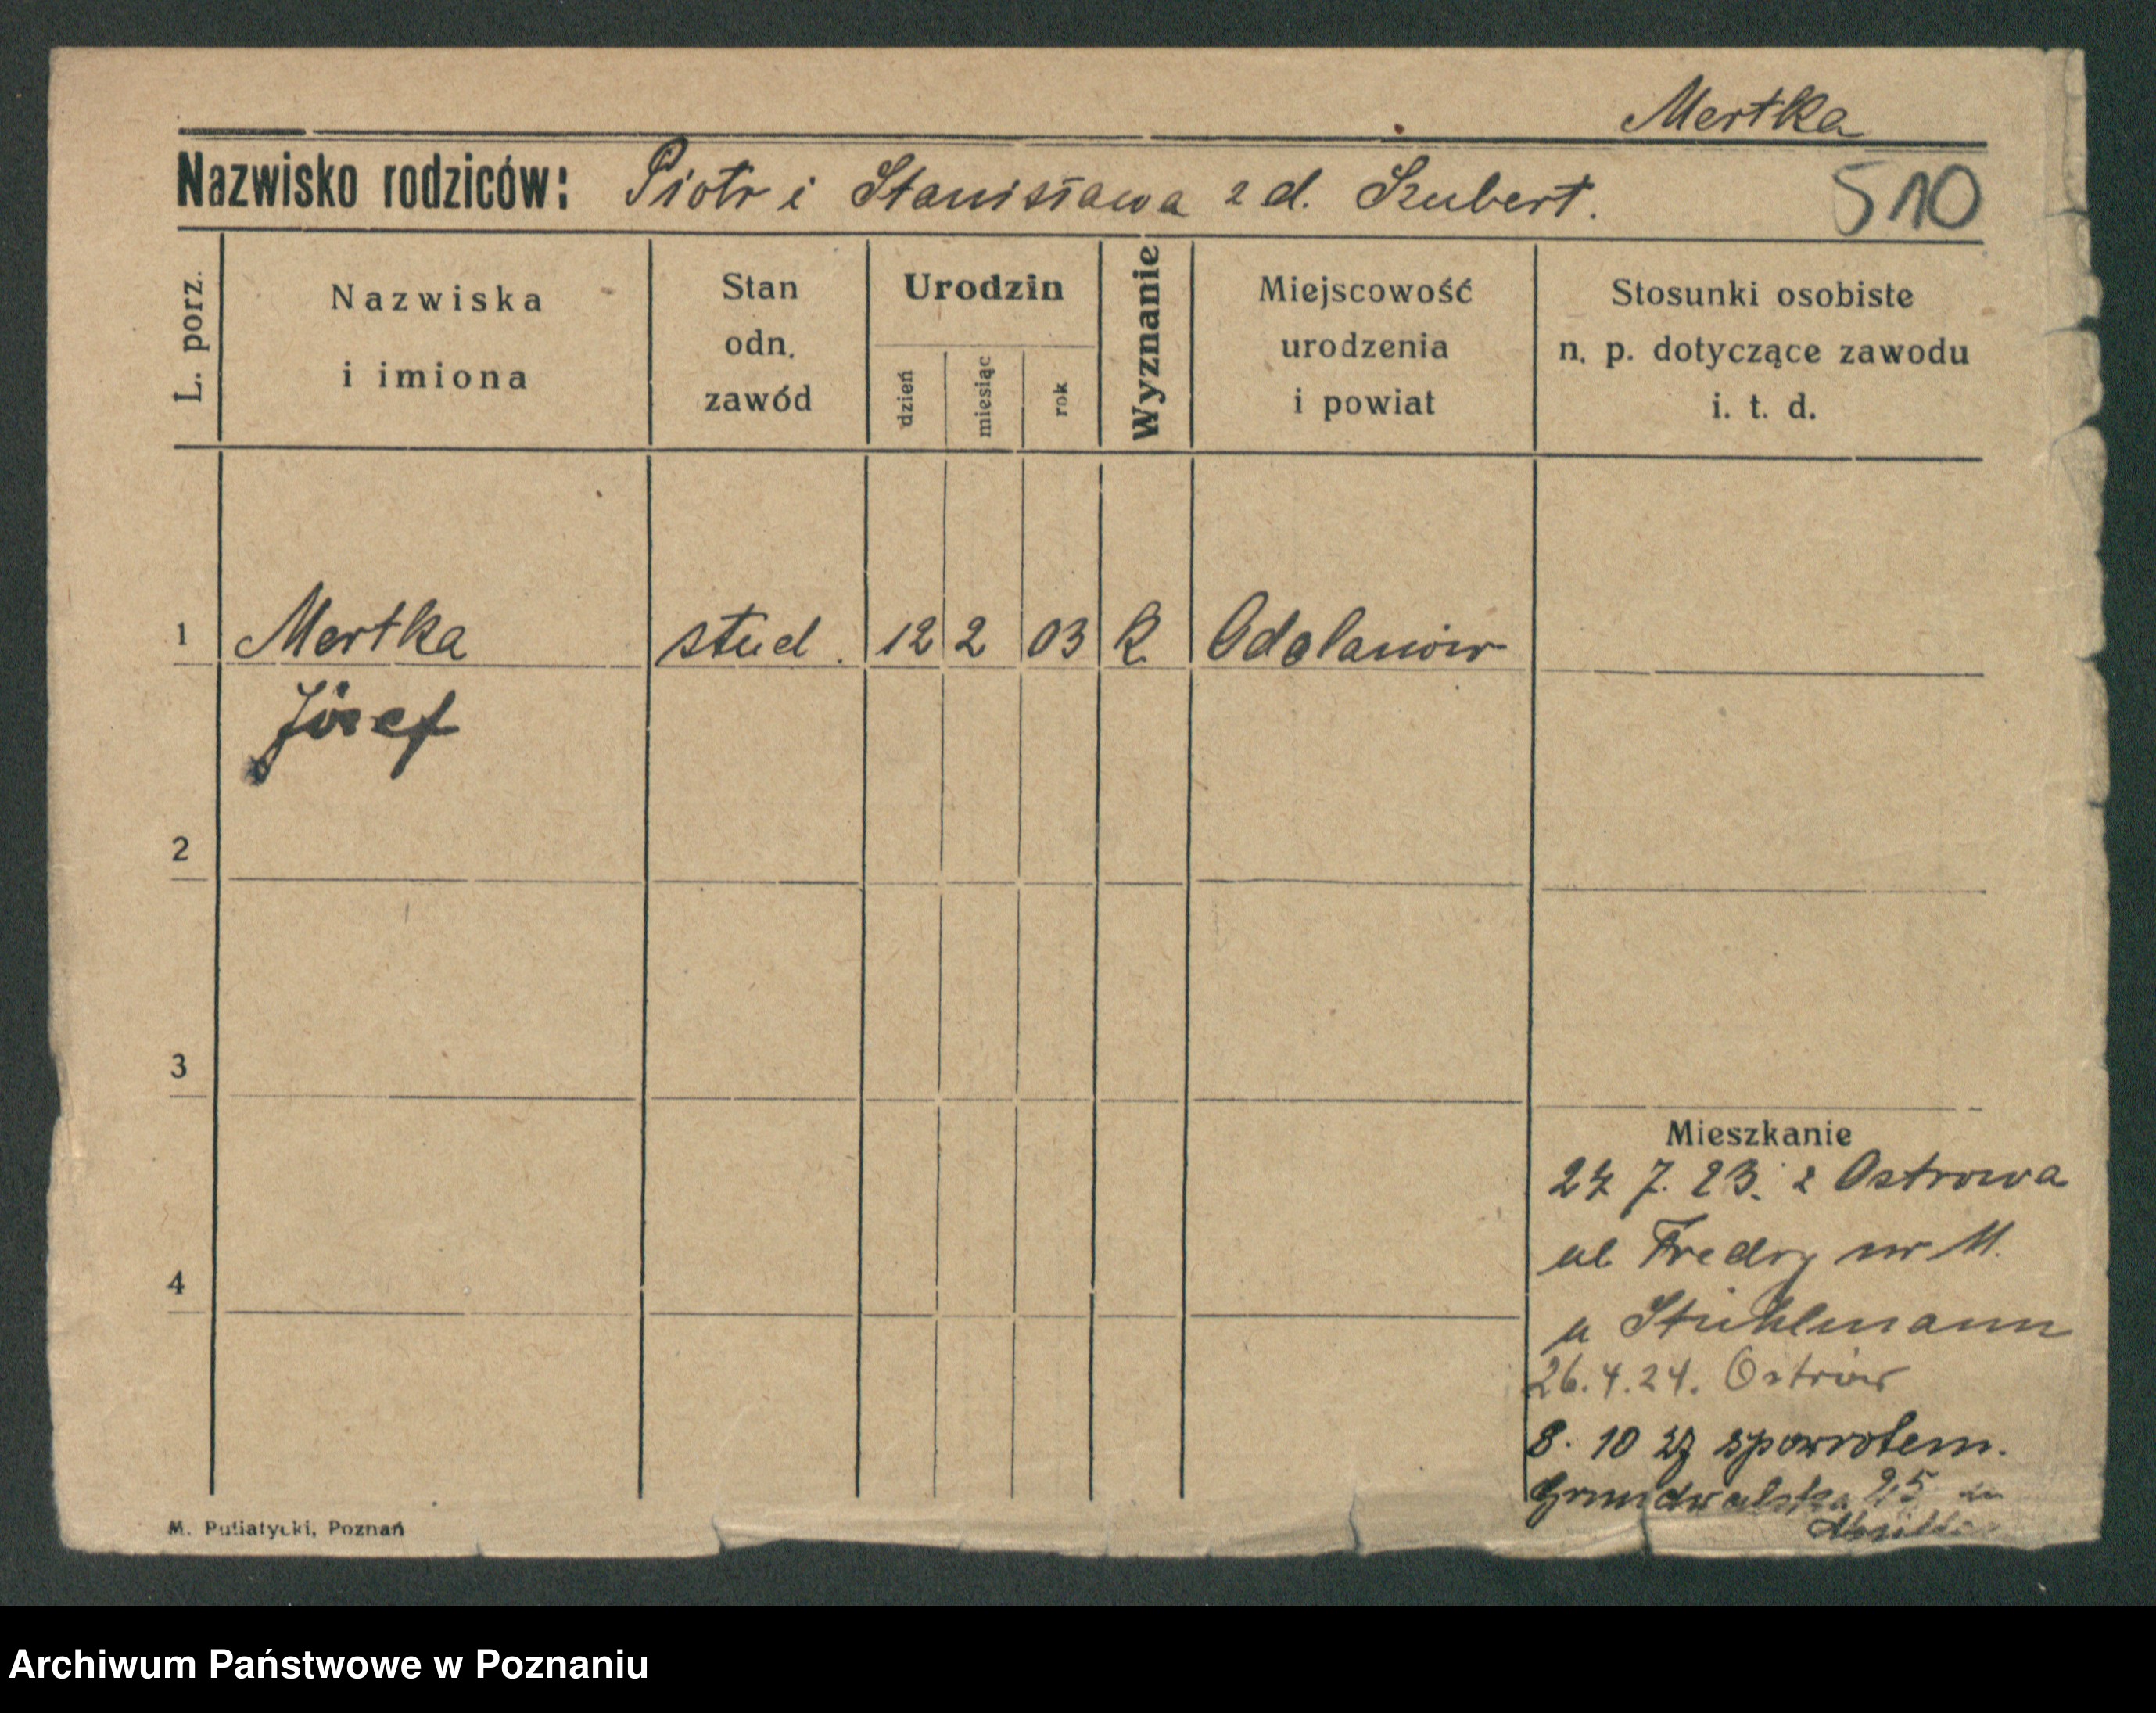 Mertka
Nazwisko rodziców: Piotr i Stanisława z d. Szubert.
510
L. porz.
Nazwiska
i imiona
Stan
odn.
zawód
Urodzin
dzień
miesiąc
rok
Wyznanie
Miejscowość
urodzenia
i powiat
Stosunki osobiste
n. p. dotyczące zawodu
i. t. d.
1 Mertka stud. 12 2 03 k Odolanów
Józef
2
3
Mieszkanie
7. 23. z Ostrowa
ul Fredry nr 11.
4
u Stuhlmann
26. 4. 24. Ostrów
8. 10 spowrotem.
Grundwalska 25
M. Putiatycki, Poznań
Archiwum Państwowe w Poznaniu